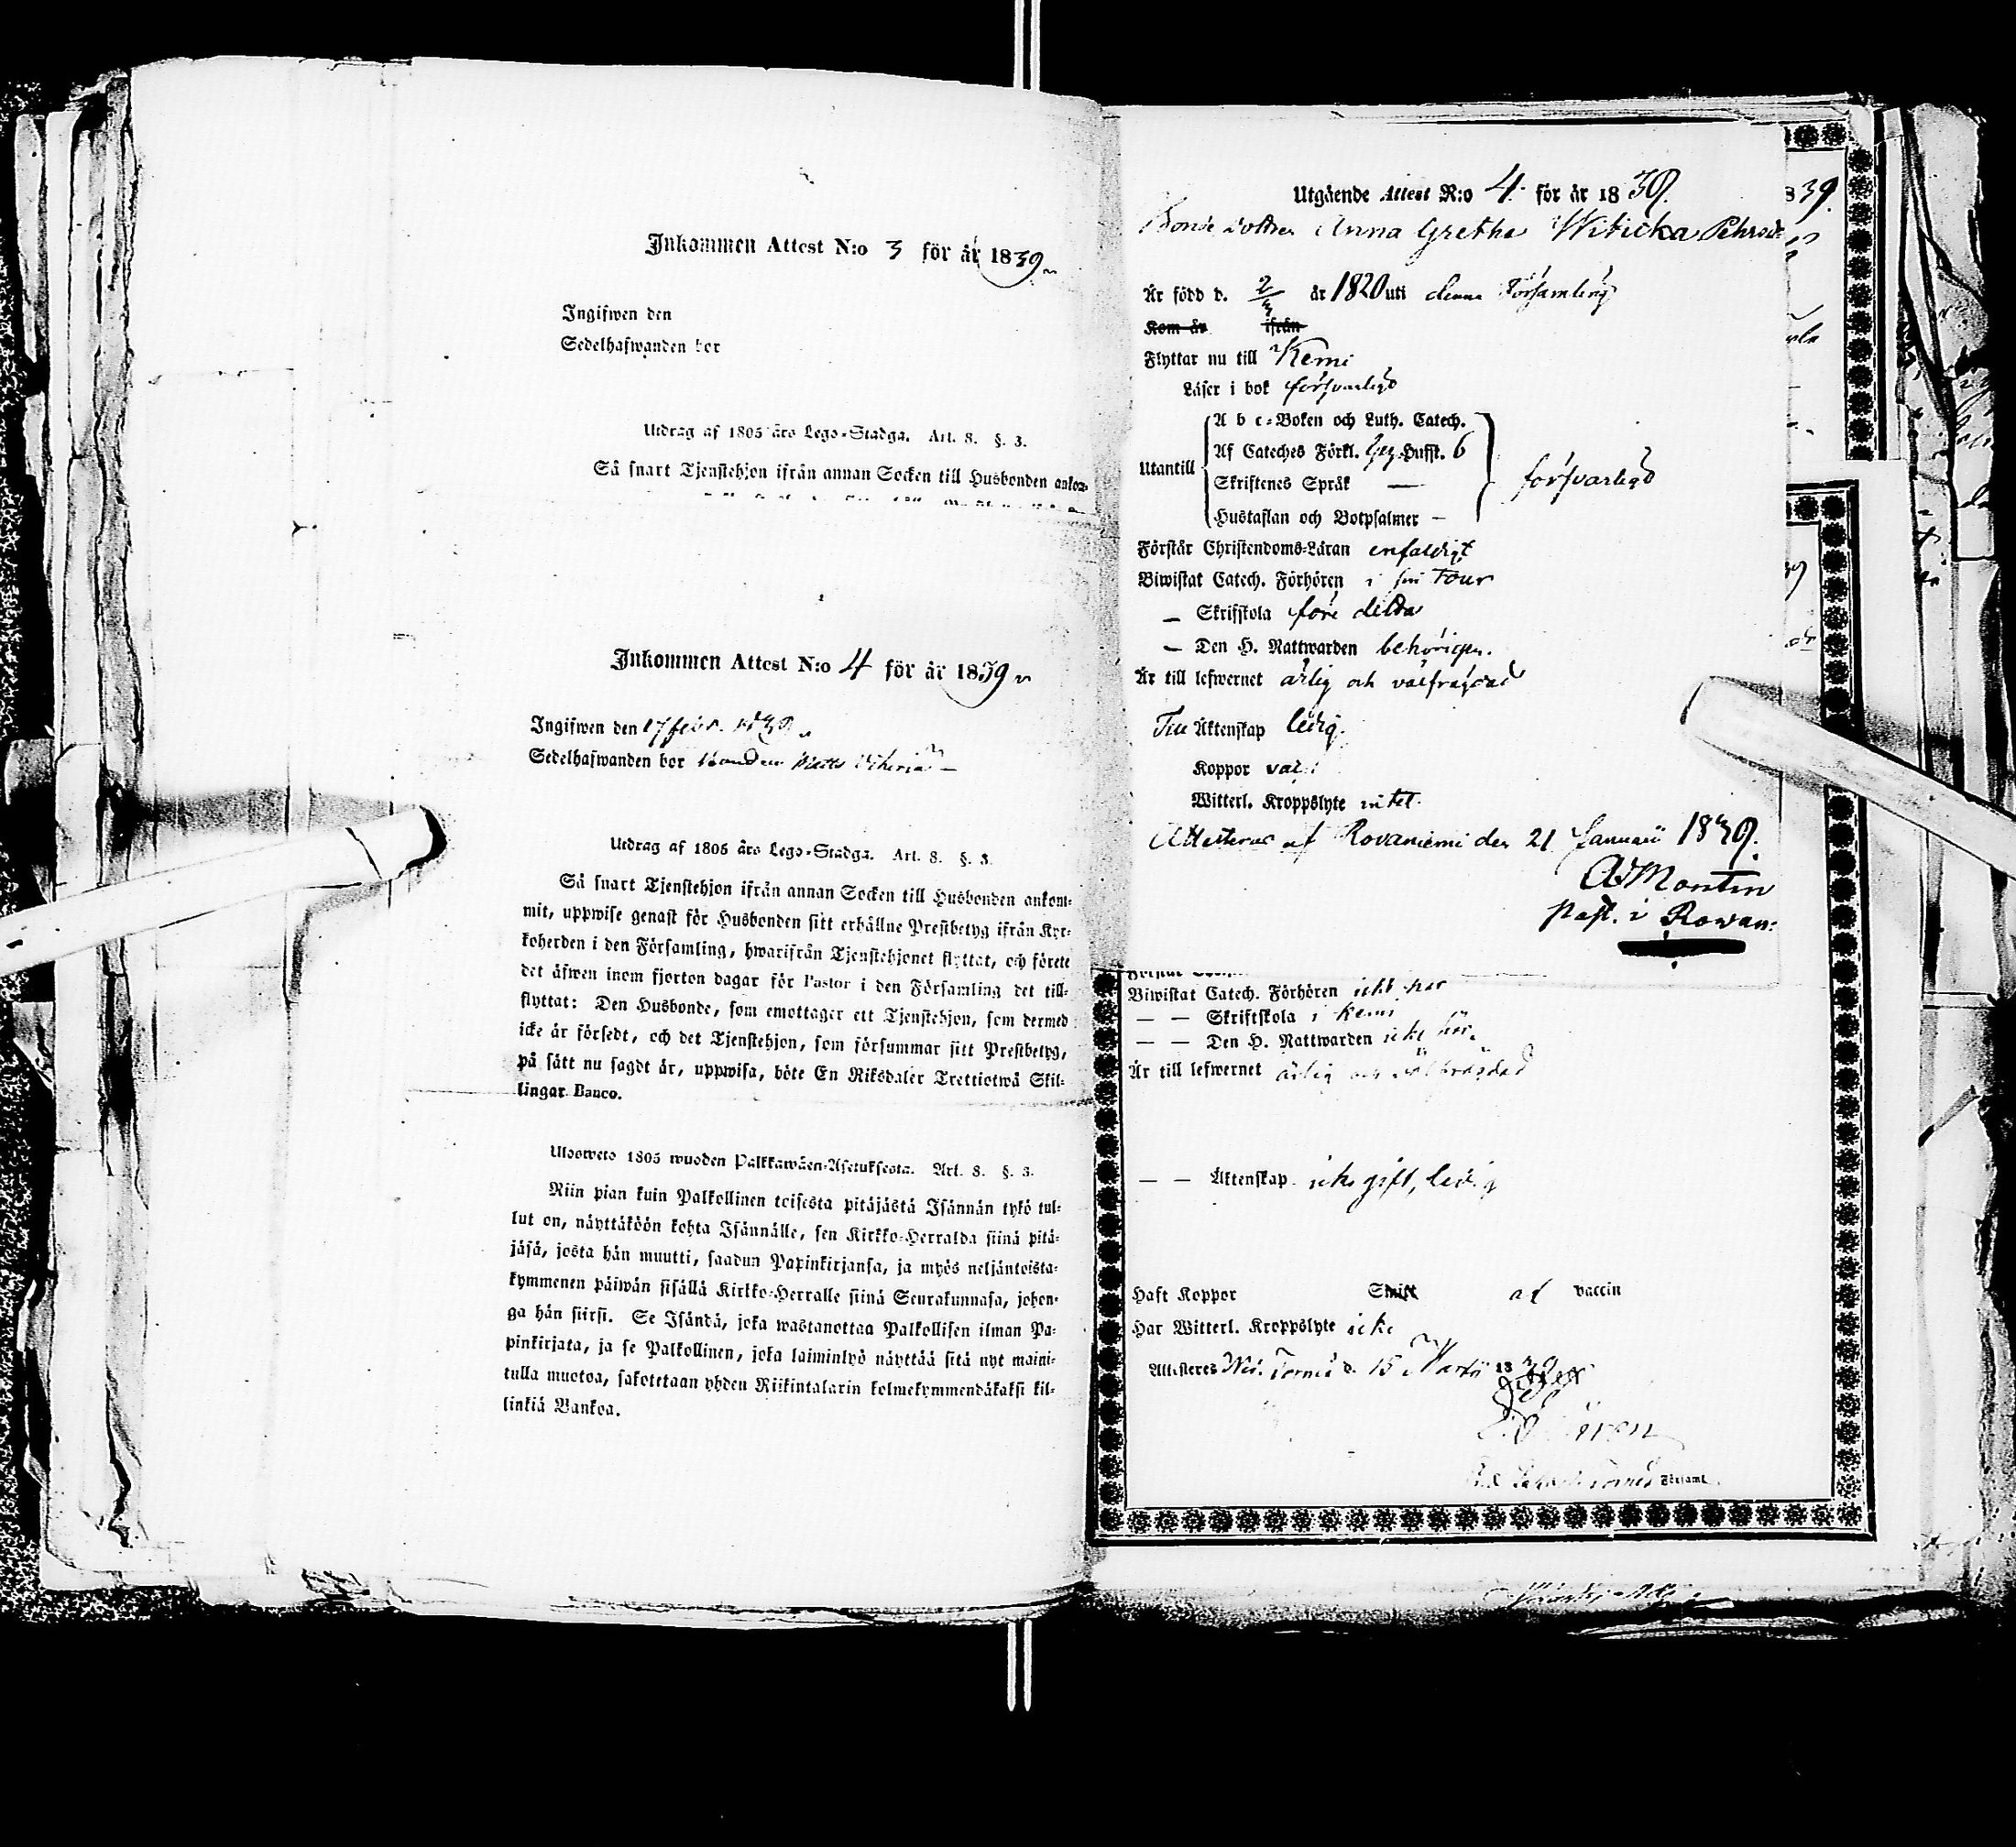 Inkommen Attest N:o 3 för år 1839
Ingifwen den
Sedelhafwanden bor
Utdrag af 1805 års Lego-Stadga. Art. 8. §. 3.
Så snart Tjenstehjon ifrån annan Socken till Husbonden ankom-
Inkommen Attest N:o 4 för år 1839
Ingifwen den 17 febr. 1839
Sedelhafwanden bor
Utdrag af 1805 års Lego-Stadga. Art. 8. §. 3.
Så snart Tjenstehjon ifrån annan Socken till Husbonden ankom-
mit, uppwise genast för Husbonden sitt erhållne Prestbetyg ifrån Kyr-
koherden i den Församling, hwarifrån Tjenstehjonet flyttat, och förete
det äfwen inom fjorton dagar för Pastor i den Församling det till-
flyttat: Den Husbonde, som emottager ett Tjenstehjon, som dermed
icke är försedt, och det Tjenstehjon, som försummar sitt Prestbetyg,
på sätt nu sagdt är, uppwisa, böte En Riksdaler Trettiotwå Skil-
lingar Banco.
Ulosweto 1805 wuoden Palkkawäen-Asetuksesta. Art. 8. §. 3.
Niin pian kuin Palkollinen toisesta pitäjästä Isännän tykö tul-
lut on, näyttäköön kohta Isännälle, sen Kirkko-Herralda siinä pitä-
jäsä, josta hän muutti, saadun Papinkirjansa, ja myös neljäntoista-
kymmenen päiwän sisällä Kirkko-Herralle siinä Seurakunnasa, johon-
ga hän siirsi. Se Isändä, joka wastanottaa Palkollisen ilman Pa-
pinkirjata, ja se Palkollinen, joka laiminlyö näyttää sitä nyt maini-
tulla muotoa, sakotetaan yhden Riikintalarin kolmekymmendäkaksi kil-
linkiä Bankoa.
Utgående Attest N:o 4. för år 1839.
Bonde dottren Anna Gretha Witicka Pehrsdr
Är född d. 2/3 år 1820 uti denna Församling
Kom år ifrån
Flyttar nu till Kemi
Läser i bok försvarligt
A b c-Boken och Luth. Catech.
Af Cateches Förkl. Hufst. 6
Utantill
Skriftenes Språk —
försvarligt
Hustaflan och Botpsalmer —
Förstår Christendoms-Läran enfaldigt
Biwistat Catech. Förhören i sin tour
— Skrifskola före detta
— Den H. Nattwarden behörigen.
Är till lefwernet ärlig och välfrägdad
Till Äktenskap ledig.
Koppor vac:
Witterl. Kroppslyte intet.
Attesteras af Rovaniemi den 21 Januarii 1839.
Montin
Past. i Rovan:
839.
Biwistat Catech. Förhören icke här
— — Skriftskola i Kemi
— — Den H. Nattwarden icke här.
Är till lefwernet ärlig och välfrägdad
— — Äktenskap icke gift, ledig
Haft Koppor Smitt af vaccin
Har Witterl. Kroppslyte icke
Attesteres Ned. Torneå d. 15 Martii 1839
Församl.